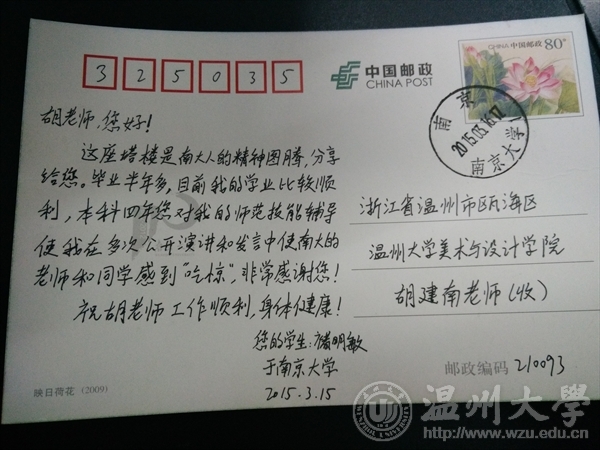 325035
中国邮政
CHINA POST
CHINA 中国邮政
80分
南京
2015.03.16.17
南京大学1
胡老师,您好!
这座塔楼是南大人的精神图腾,分享
给您。毕业半年多,目前我的学业比较顺
利,本科四年您对我的师范技能辅导
使我在多次公开演讲和发言中使南大的
老师和同学感到“吃惊”,非常感谢您!
祝胡老师工作顺利,身体健康!
您的学生:褚明敏
于南京大学
2015.3.15
浙江省温州市瓯海区
温州大学美术与设计学院
胡建南老师(收)
邮政编码 210093
映日荷花 (2009)
温州大学
http://www.wzu.edu.cn